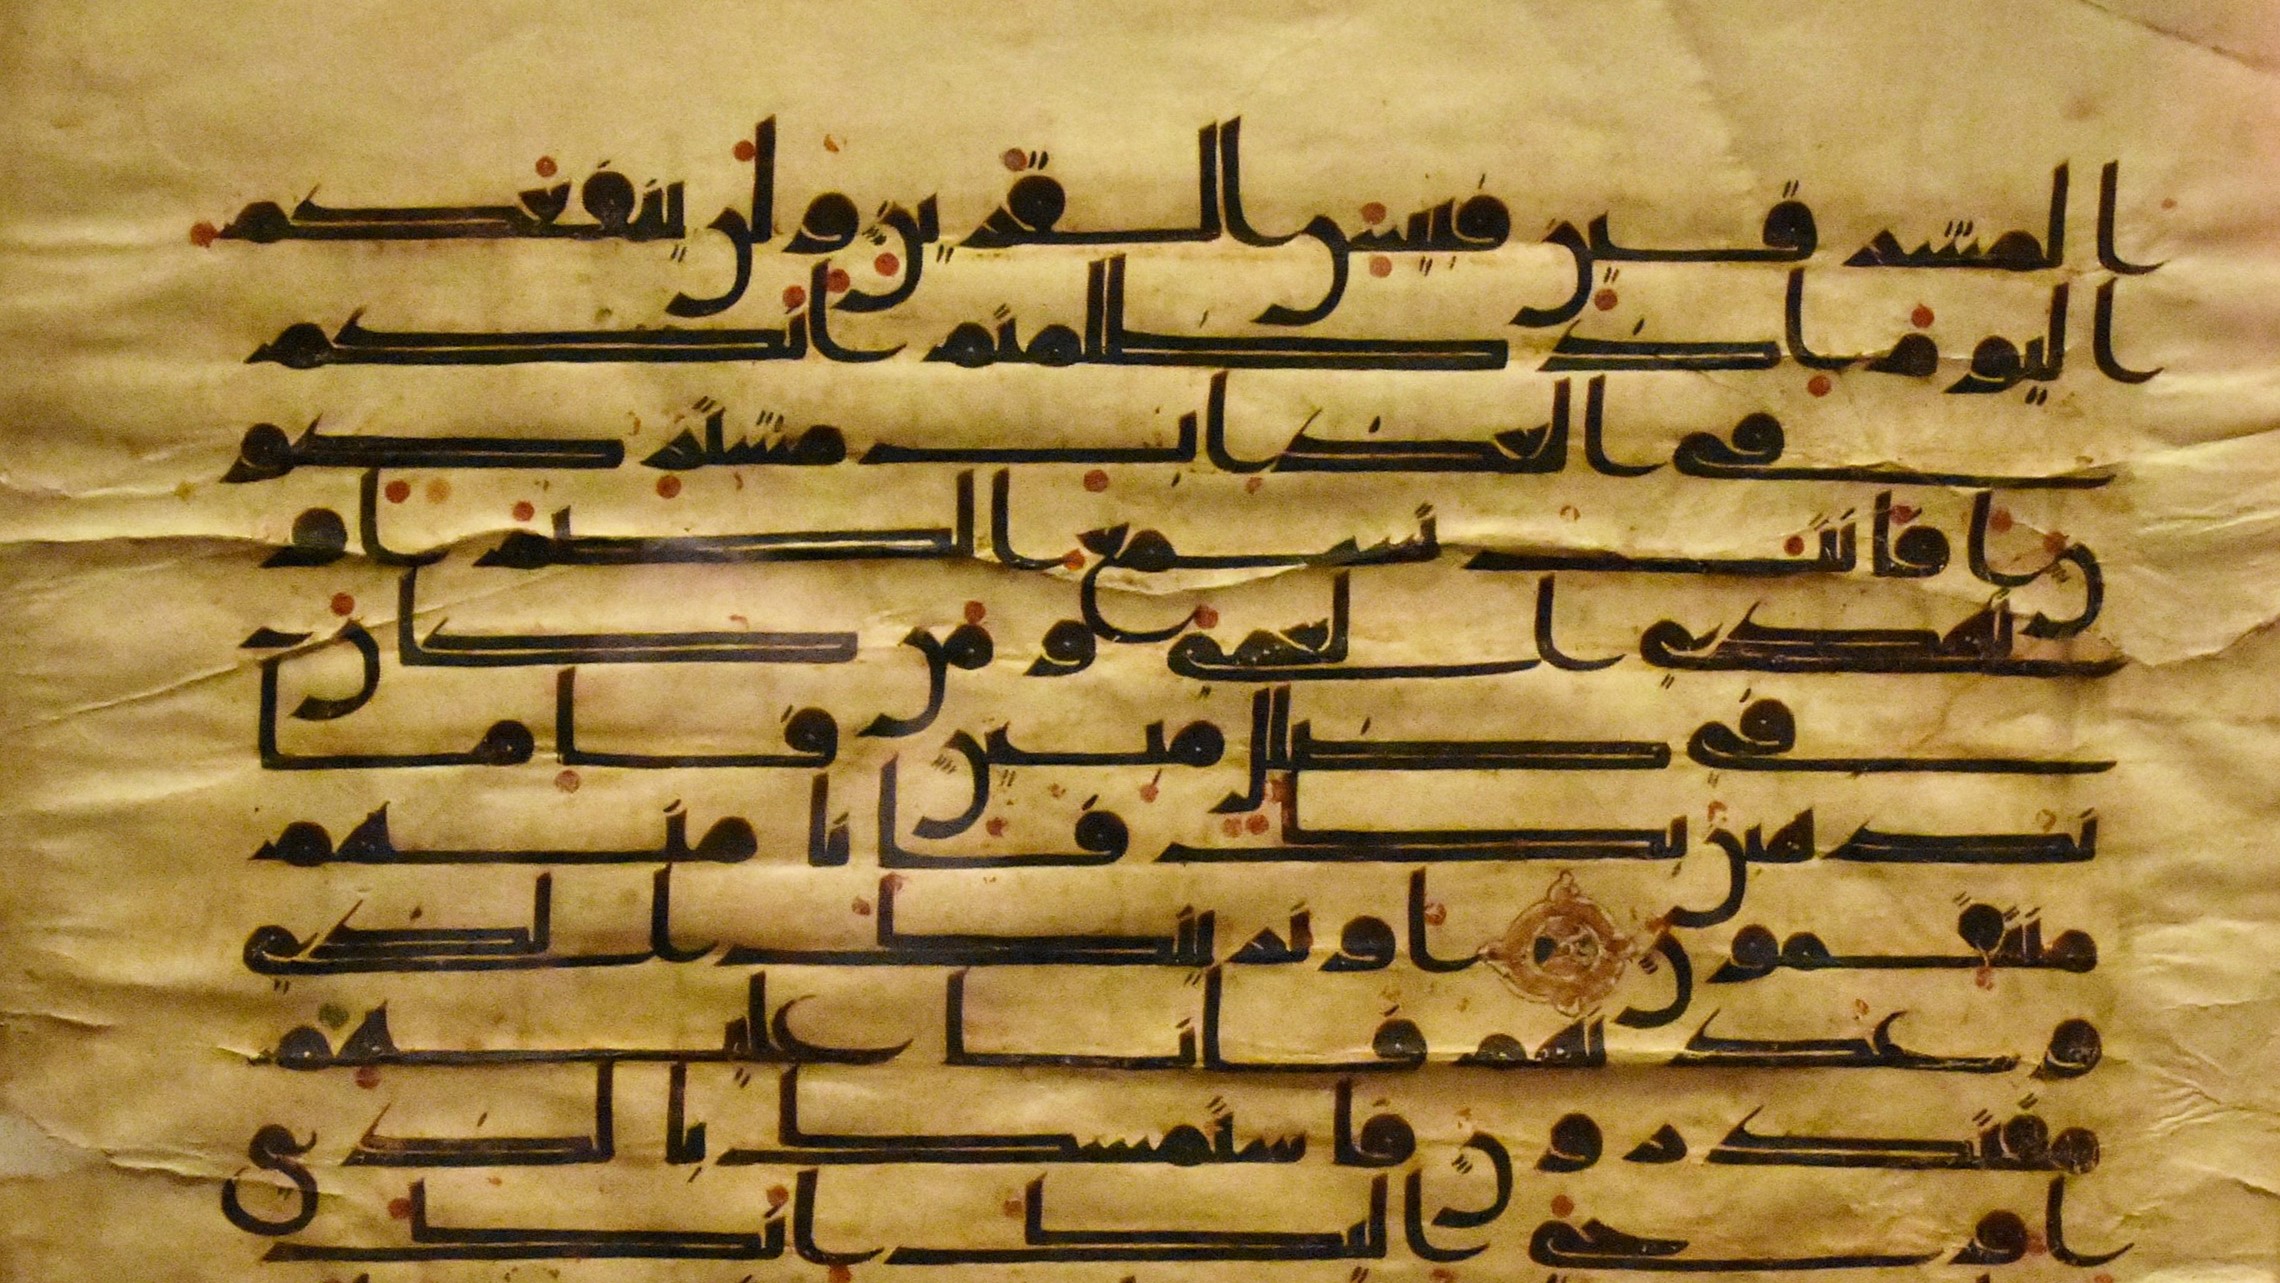 المشرقين فبيس القرين ولن ينفعكم
اليوم اذ ظلمتم انكم
في العذاب مشتركو
ن افانت تسمع الصم او
تهدي العمي ومن كان
في ضلل مبين فاما
نذهبن بك فانا منهم
منتقمون او نرينك الذي
وعدنهم فانا عليهم
مقتدرون فاستمسك بالذي
اوحي اليك انك